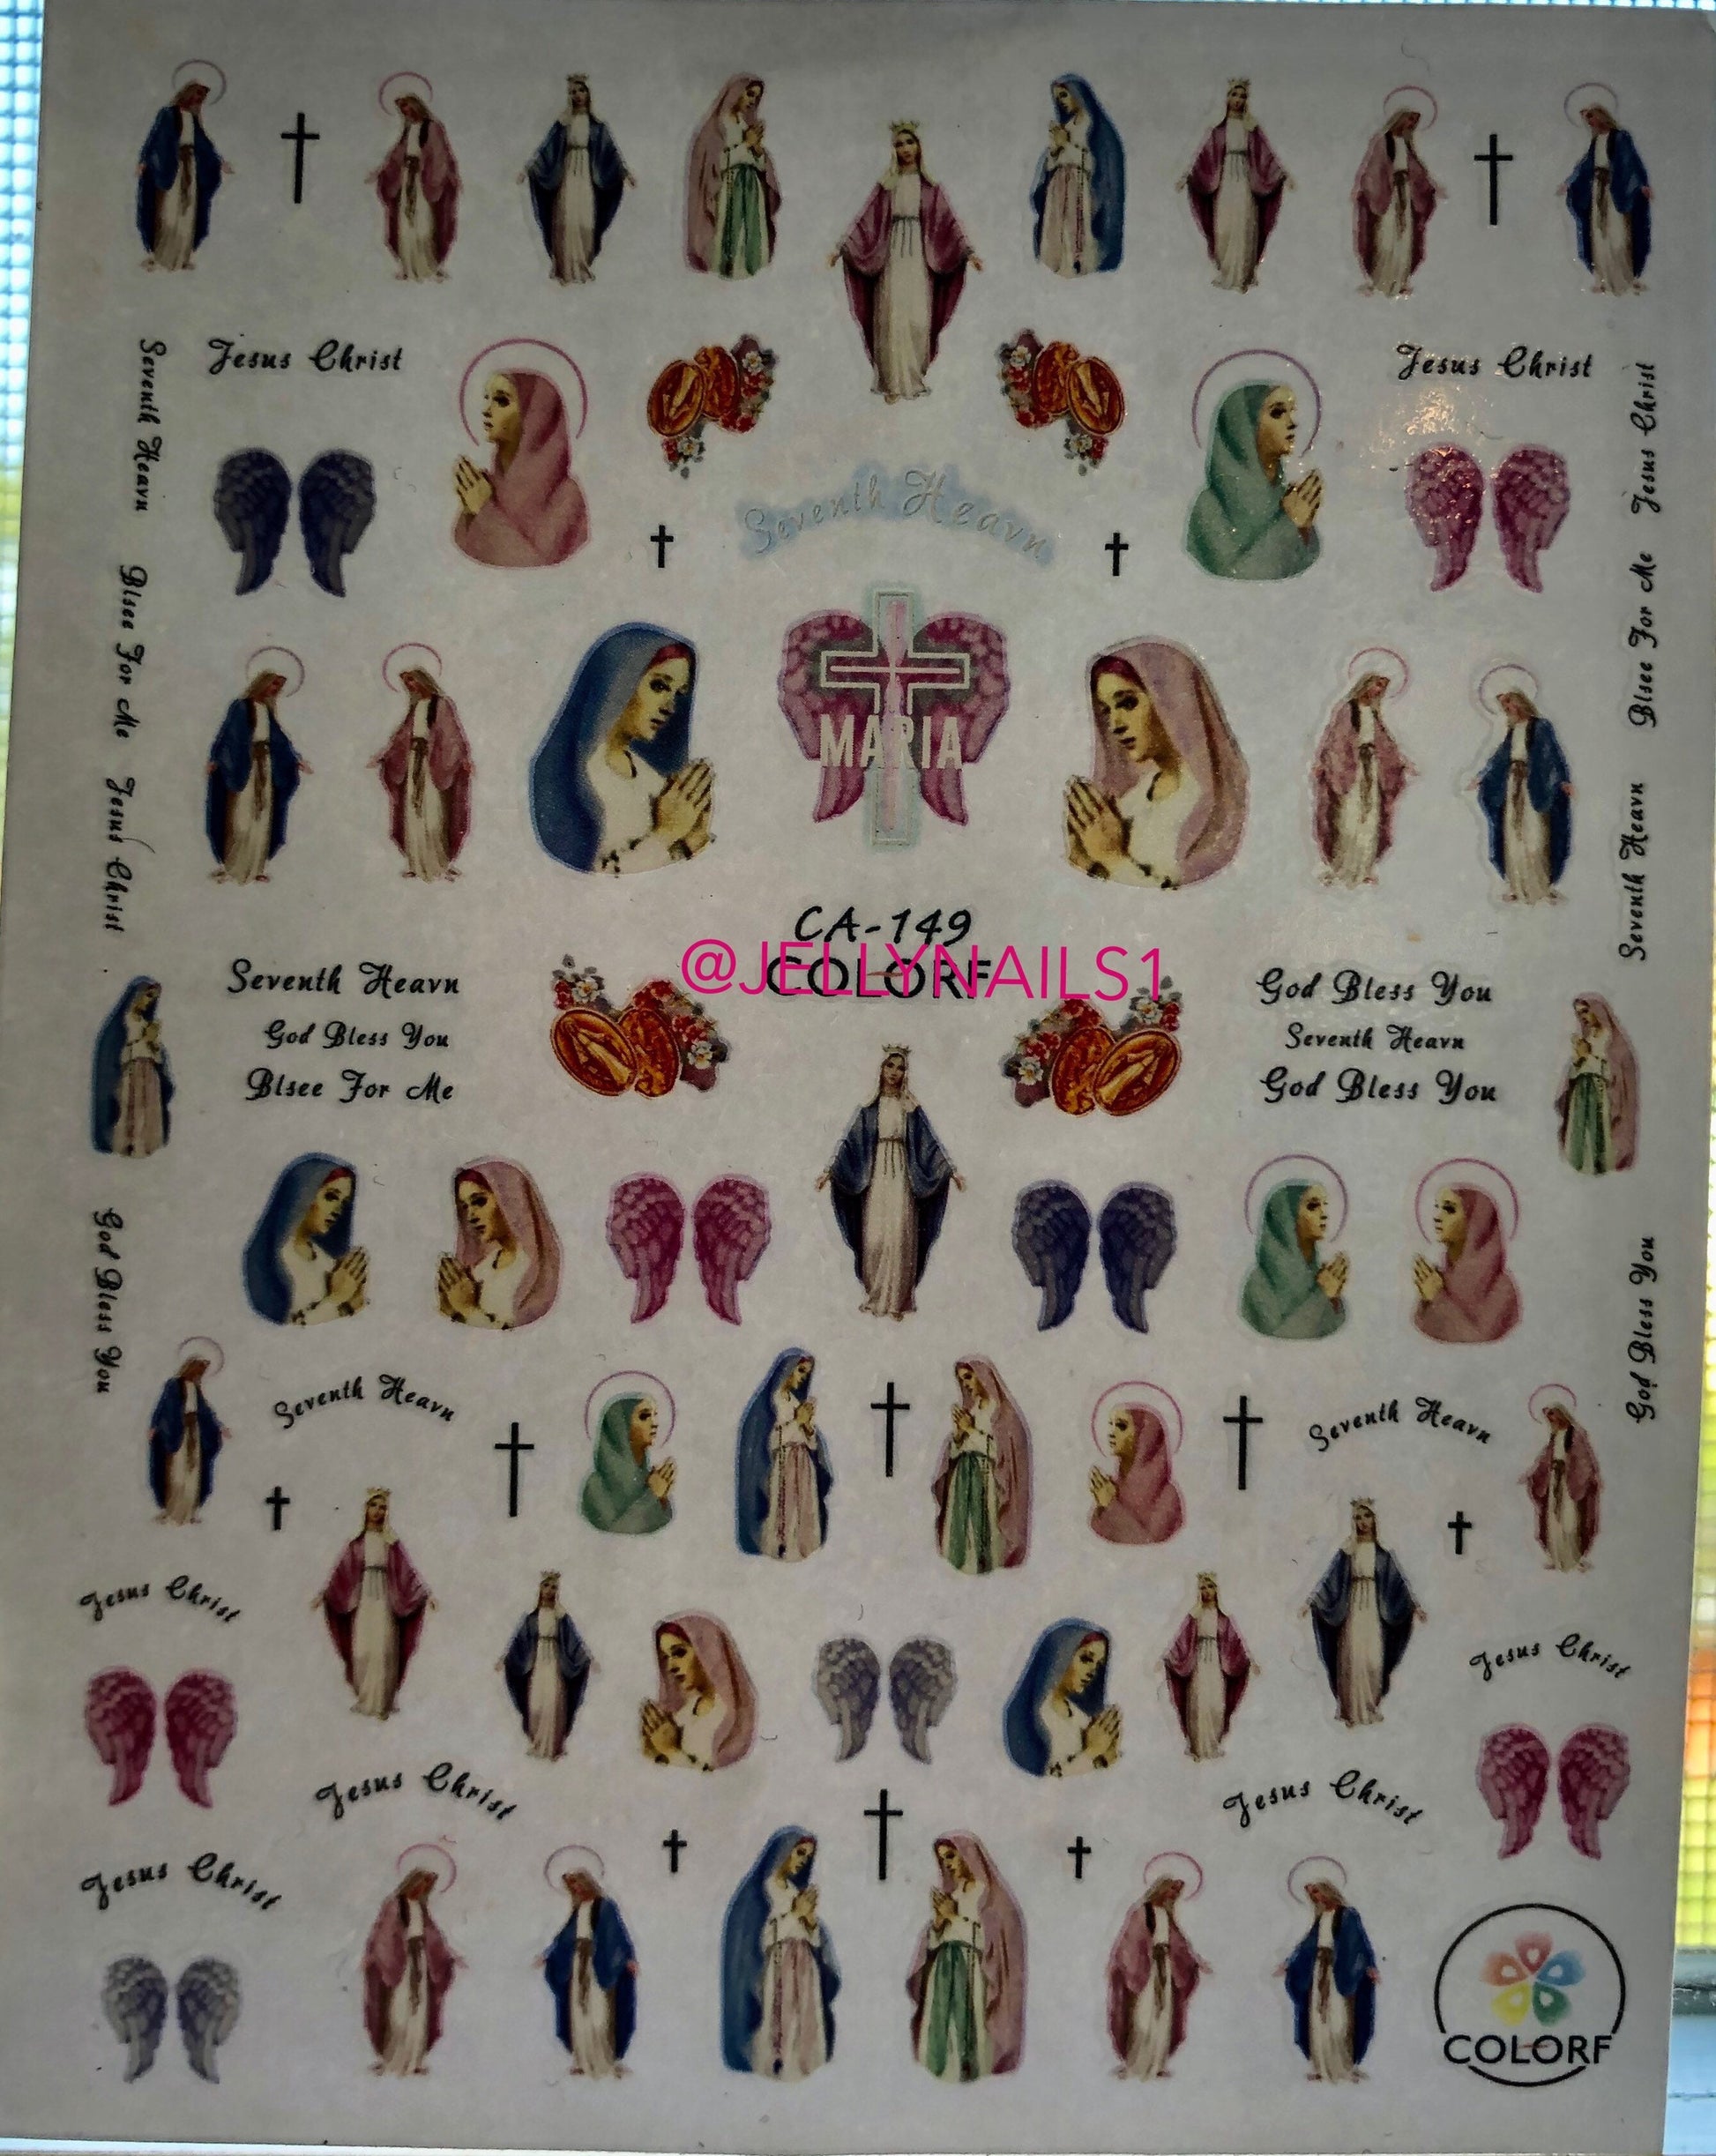 Jesus Christ
Jesus Christ
Seventh Heavn
Blsee For Me
Jesus Christ
Jesus Christ
Blsee For Me
Seventh Heavn
Seventh Heavn
MARIA
CA-149
COLORF
@JELLYNAILS1
Seventh Heavn
God Bless You
Blsee For Me
God Bless You
Seventh Heavn
God Bless You
God Bless You
God Bless You
Seventh Heavn
Seventh Heavn
Jesus Christ
Jesus Christ
Jesus Christ
Jesus Christ
Jesus Christ
COLORF